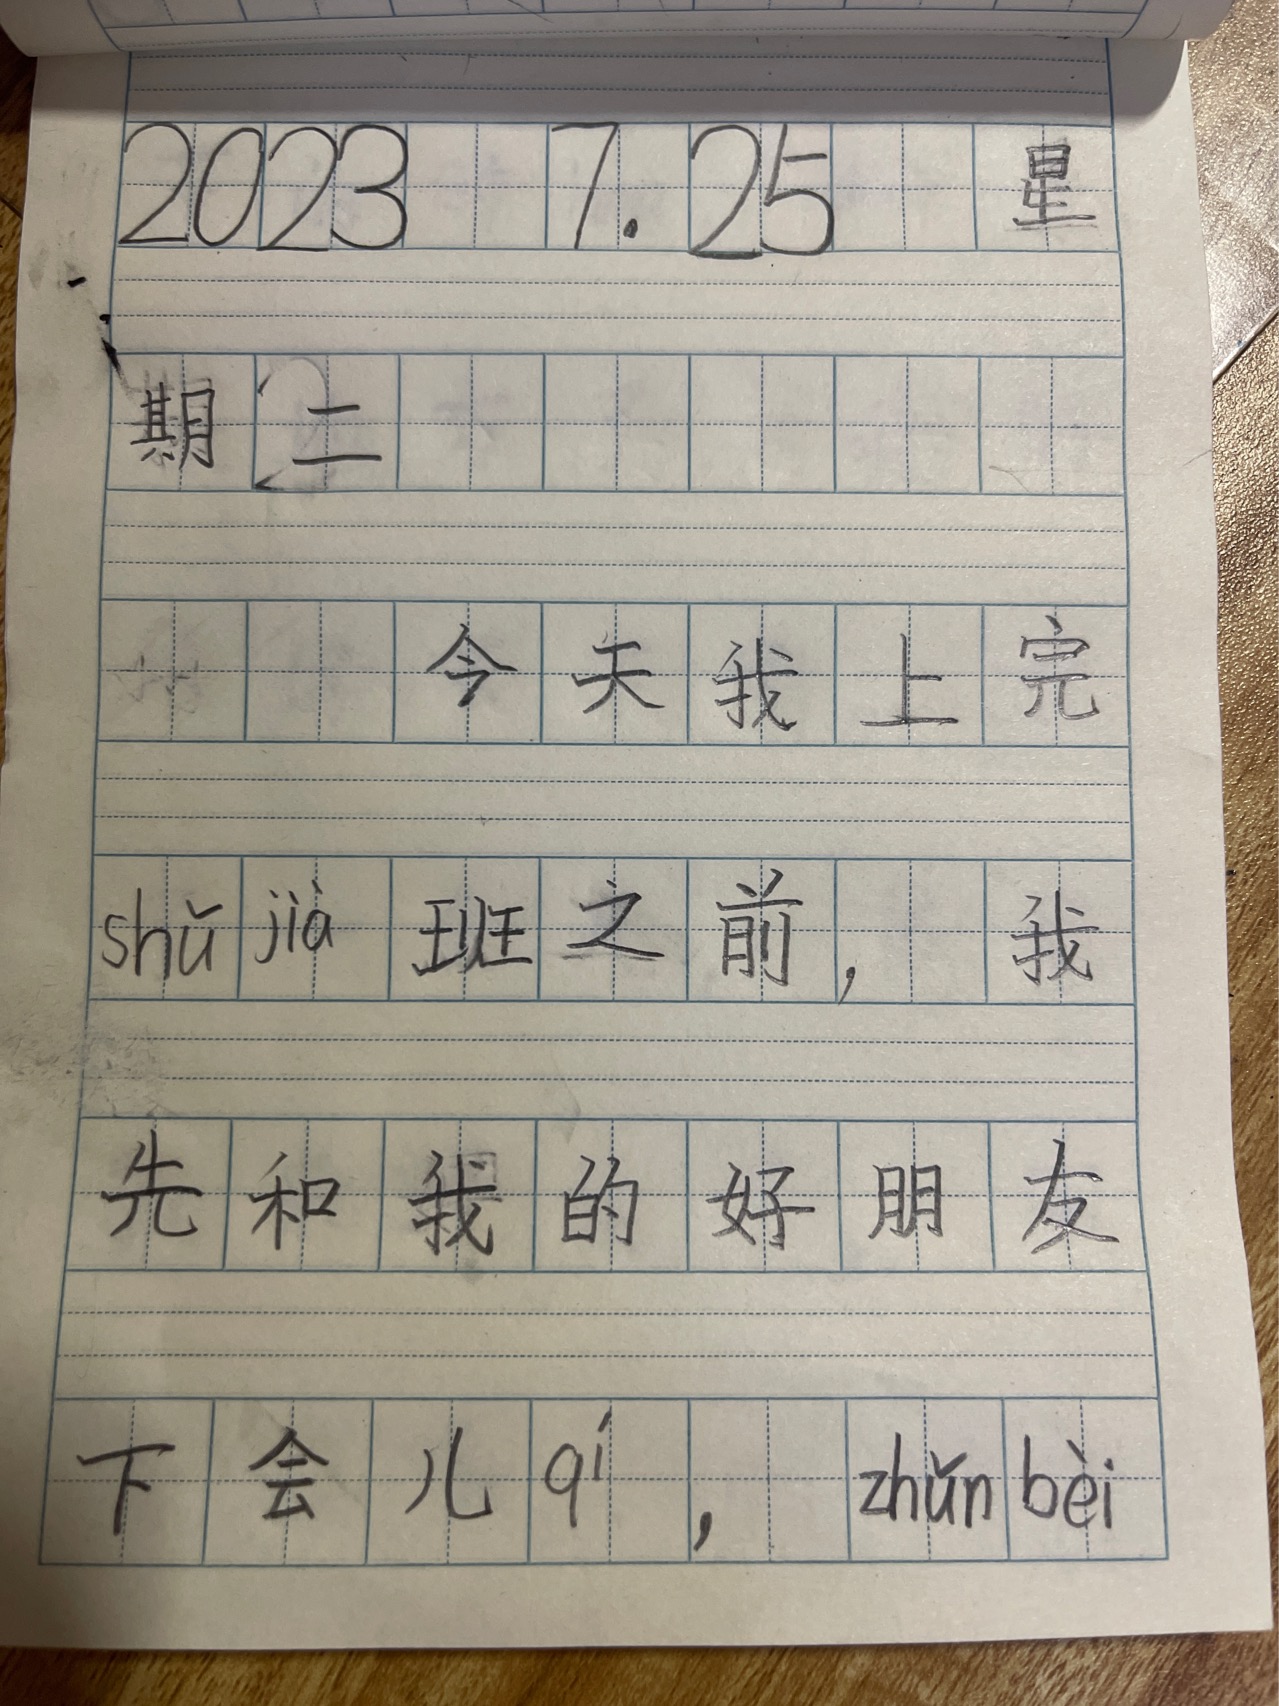 2023 7.25 星
期二
今天我上完
shǔ jià 班之前，我
先和我的好朋友
下会儿 qí ，zhǔn bèi